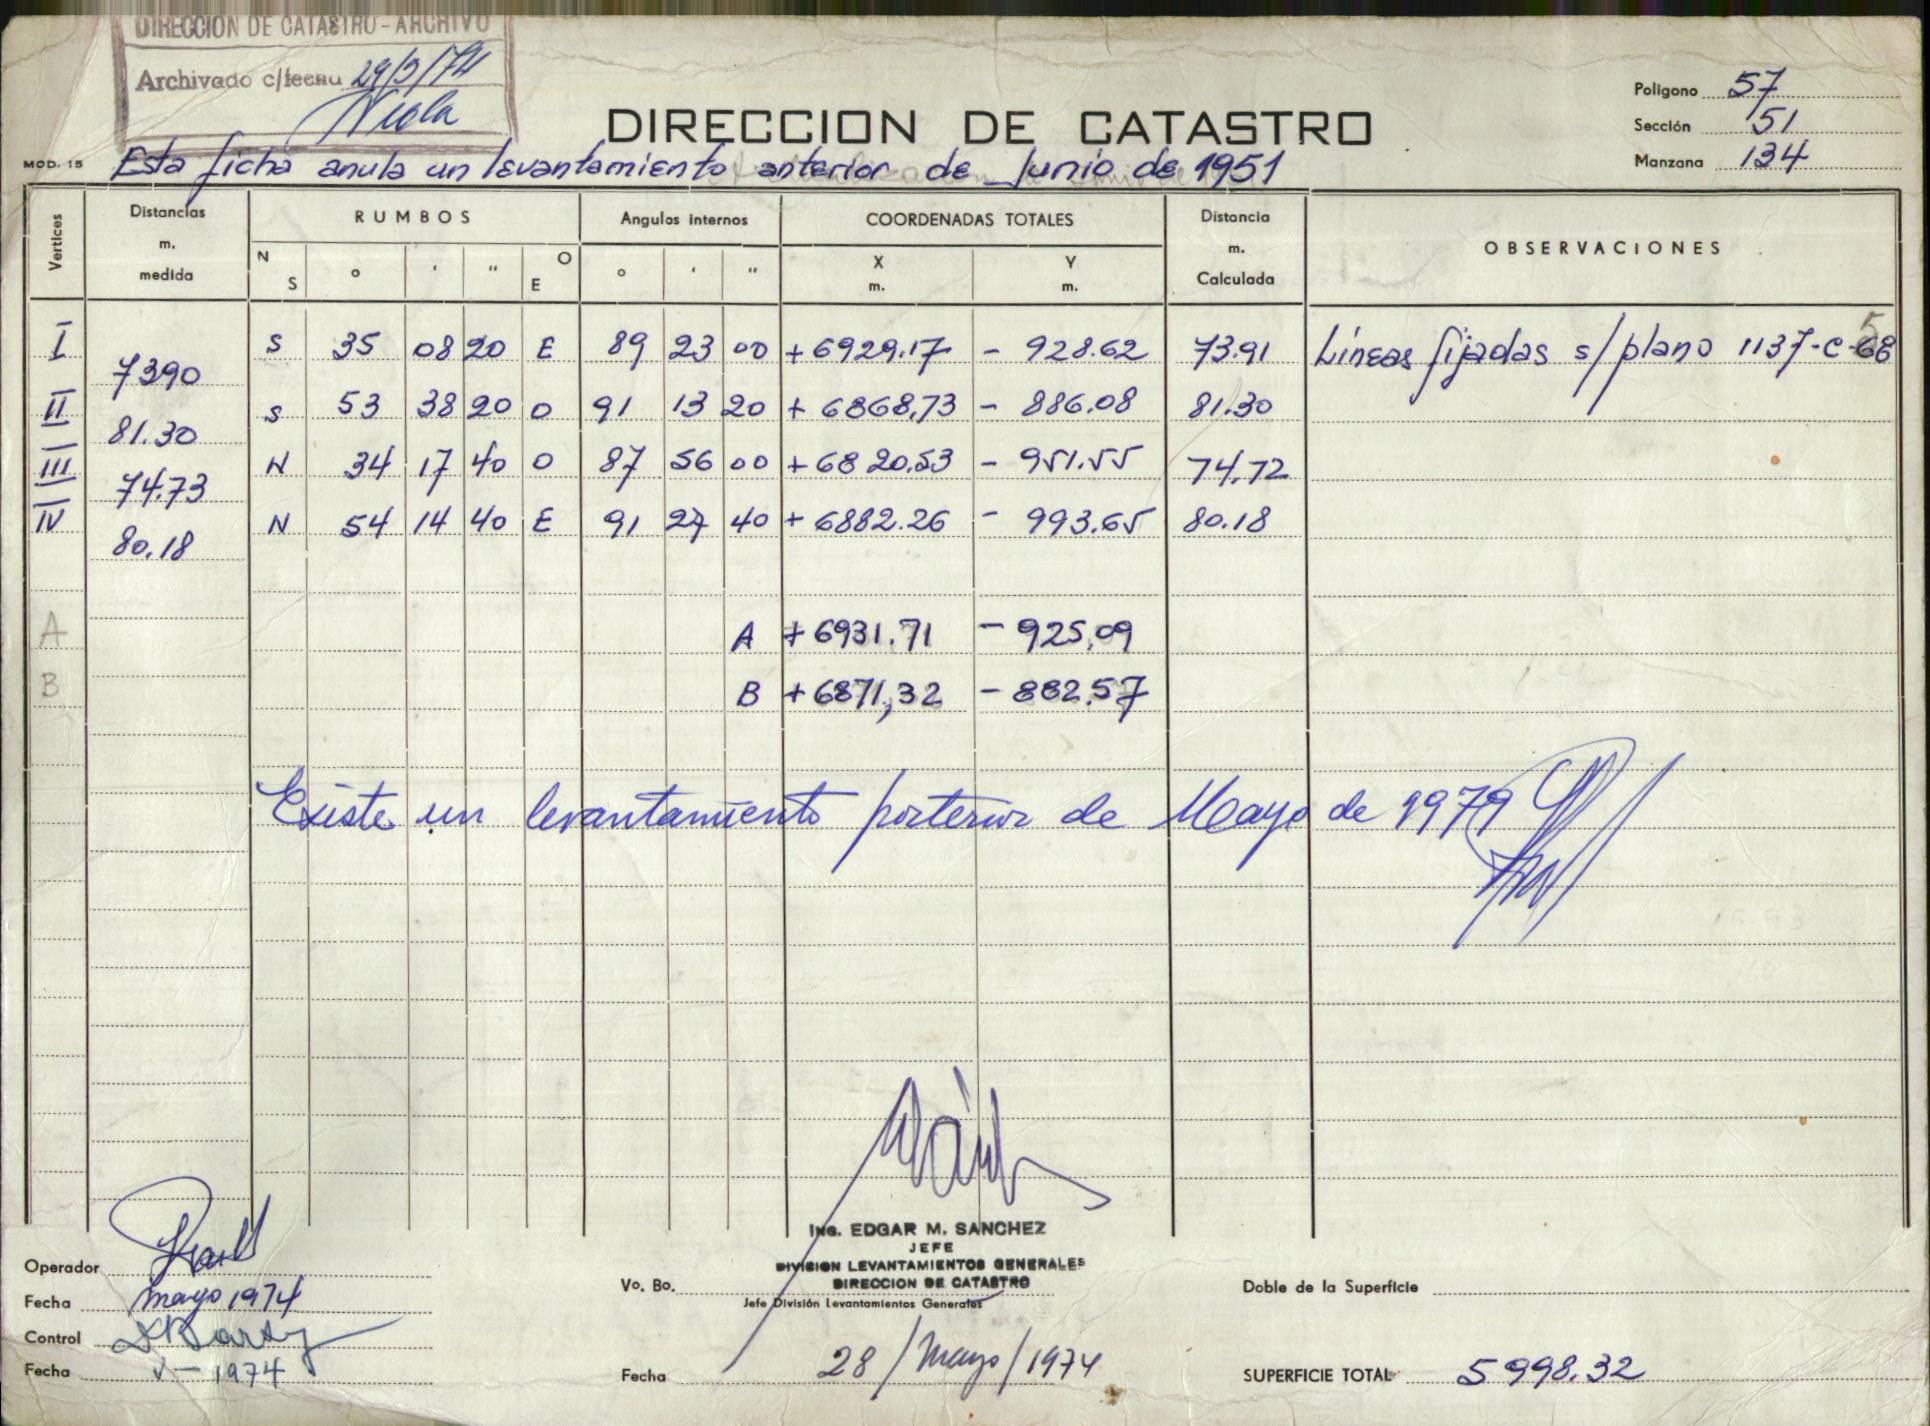 DIRECCION DE CATASTRO - ARCHIVO
Archivado c/fecha 29/5/74
Viola
DIRECCION DE CATASTRO
Poligono 57
Sección 51
Manzana 134
MOD. 15 Esta ficha anula un levantamiento anterior de Junio de 1951
Vertices Distancias m. medida RUMBOS Angulos internos COORDENADAS TOTALES Distancia m. Calculada OBSERVACIONES
N S ° ' " O E ° ' " X m. Y m.
I S 35 08 20 E 89 23 00 + 6929.17 - 928.62 73.91 Lineas fijadas s/plano 1137-C-68
7390
II S 53 38 20 O 91 13 20 + 6868,73 - 886.08 81.30
81.30
III N 34 17 40 O 87 56 00 + 6820.53 - 951.55 74,72
74.73
IV N 54 14 40 E 91 27 40 + 6882.26 - 993.65 80.18
80.18
A A + 6931.71 - 925,09
B B + 6871,32 - 882.57
Existe un levantamiento posterior de Mayo de 1979
Ing. EDGAR M. SANCHEZ
JEFE
DIVISION LEVANTAMIENTOS GENERALES
DIRECCION DE CATASTRO
Operador
Vo. Bo.
Jefe División Levantamientos Generales
Doble de la Superficie
Fecha mayo 1974
Control
Fecha V - 1974
Fecha 28/Mayo/1974
SUPERFICIE TOTAL 5998.32